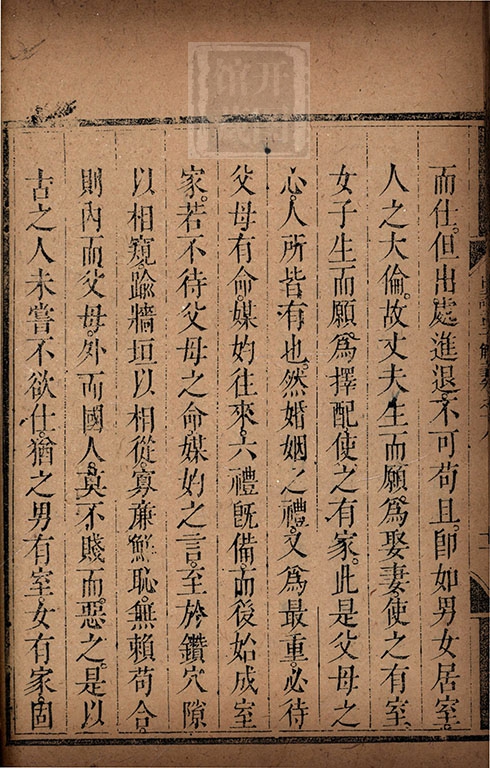 而仕。但出處進退。不可苟且。卽如男女居室。
人之大倫。故丈夫生而願爲娶妻。使之有室。
女子生而願爲擇配。使之有家。此是父母之
心。人所皆有也。然婚姻之禮。又爲最重。必待
父母有命。媒妁往來。六禮旣備。而後始成室
家。若不待父母之命媒妁之言。至於鑽穴隙
以相窺。踰牆垣以相從。寡廉鮮恥。無賴苟合。
則內而父母。外而國人。莫不賤而惡之。是以
古之人未嘗不欲仕。猶之男有室女有家。固